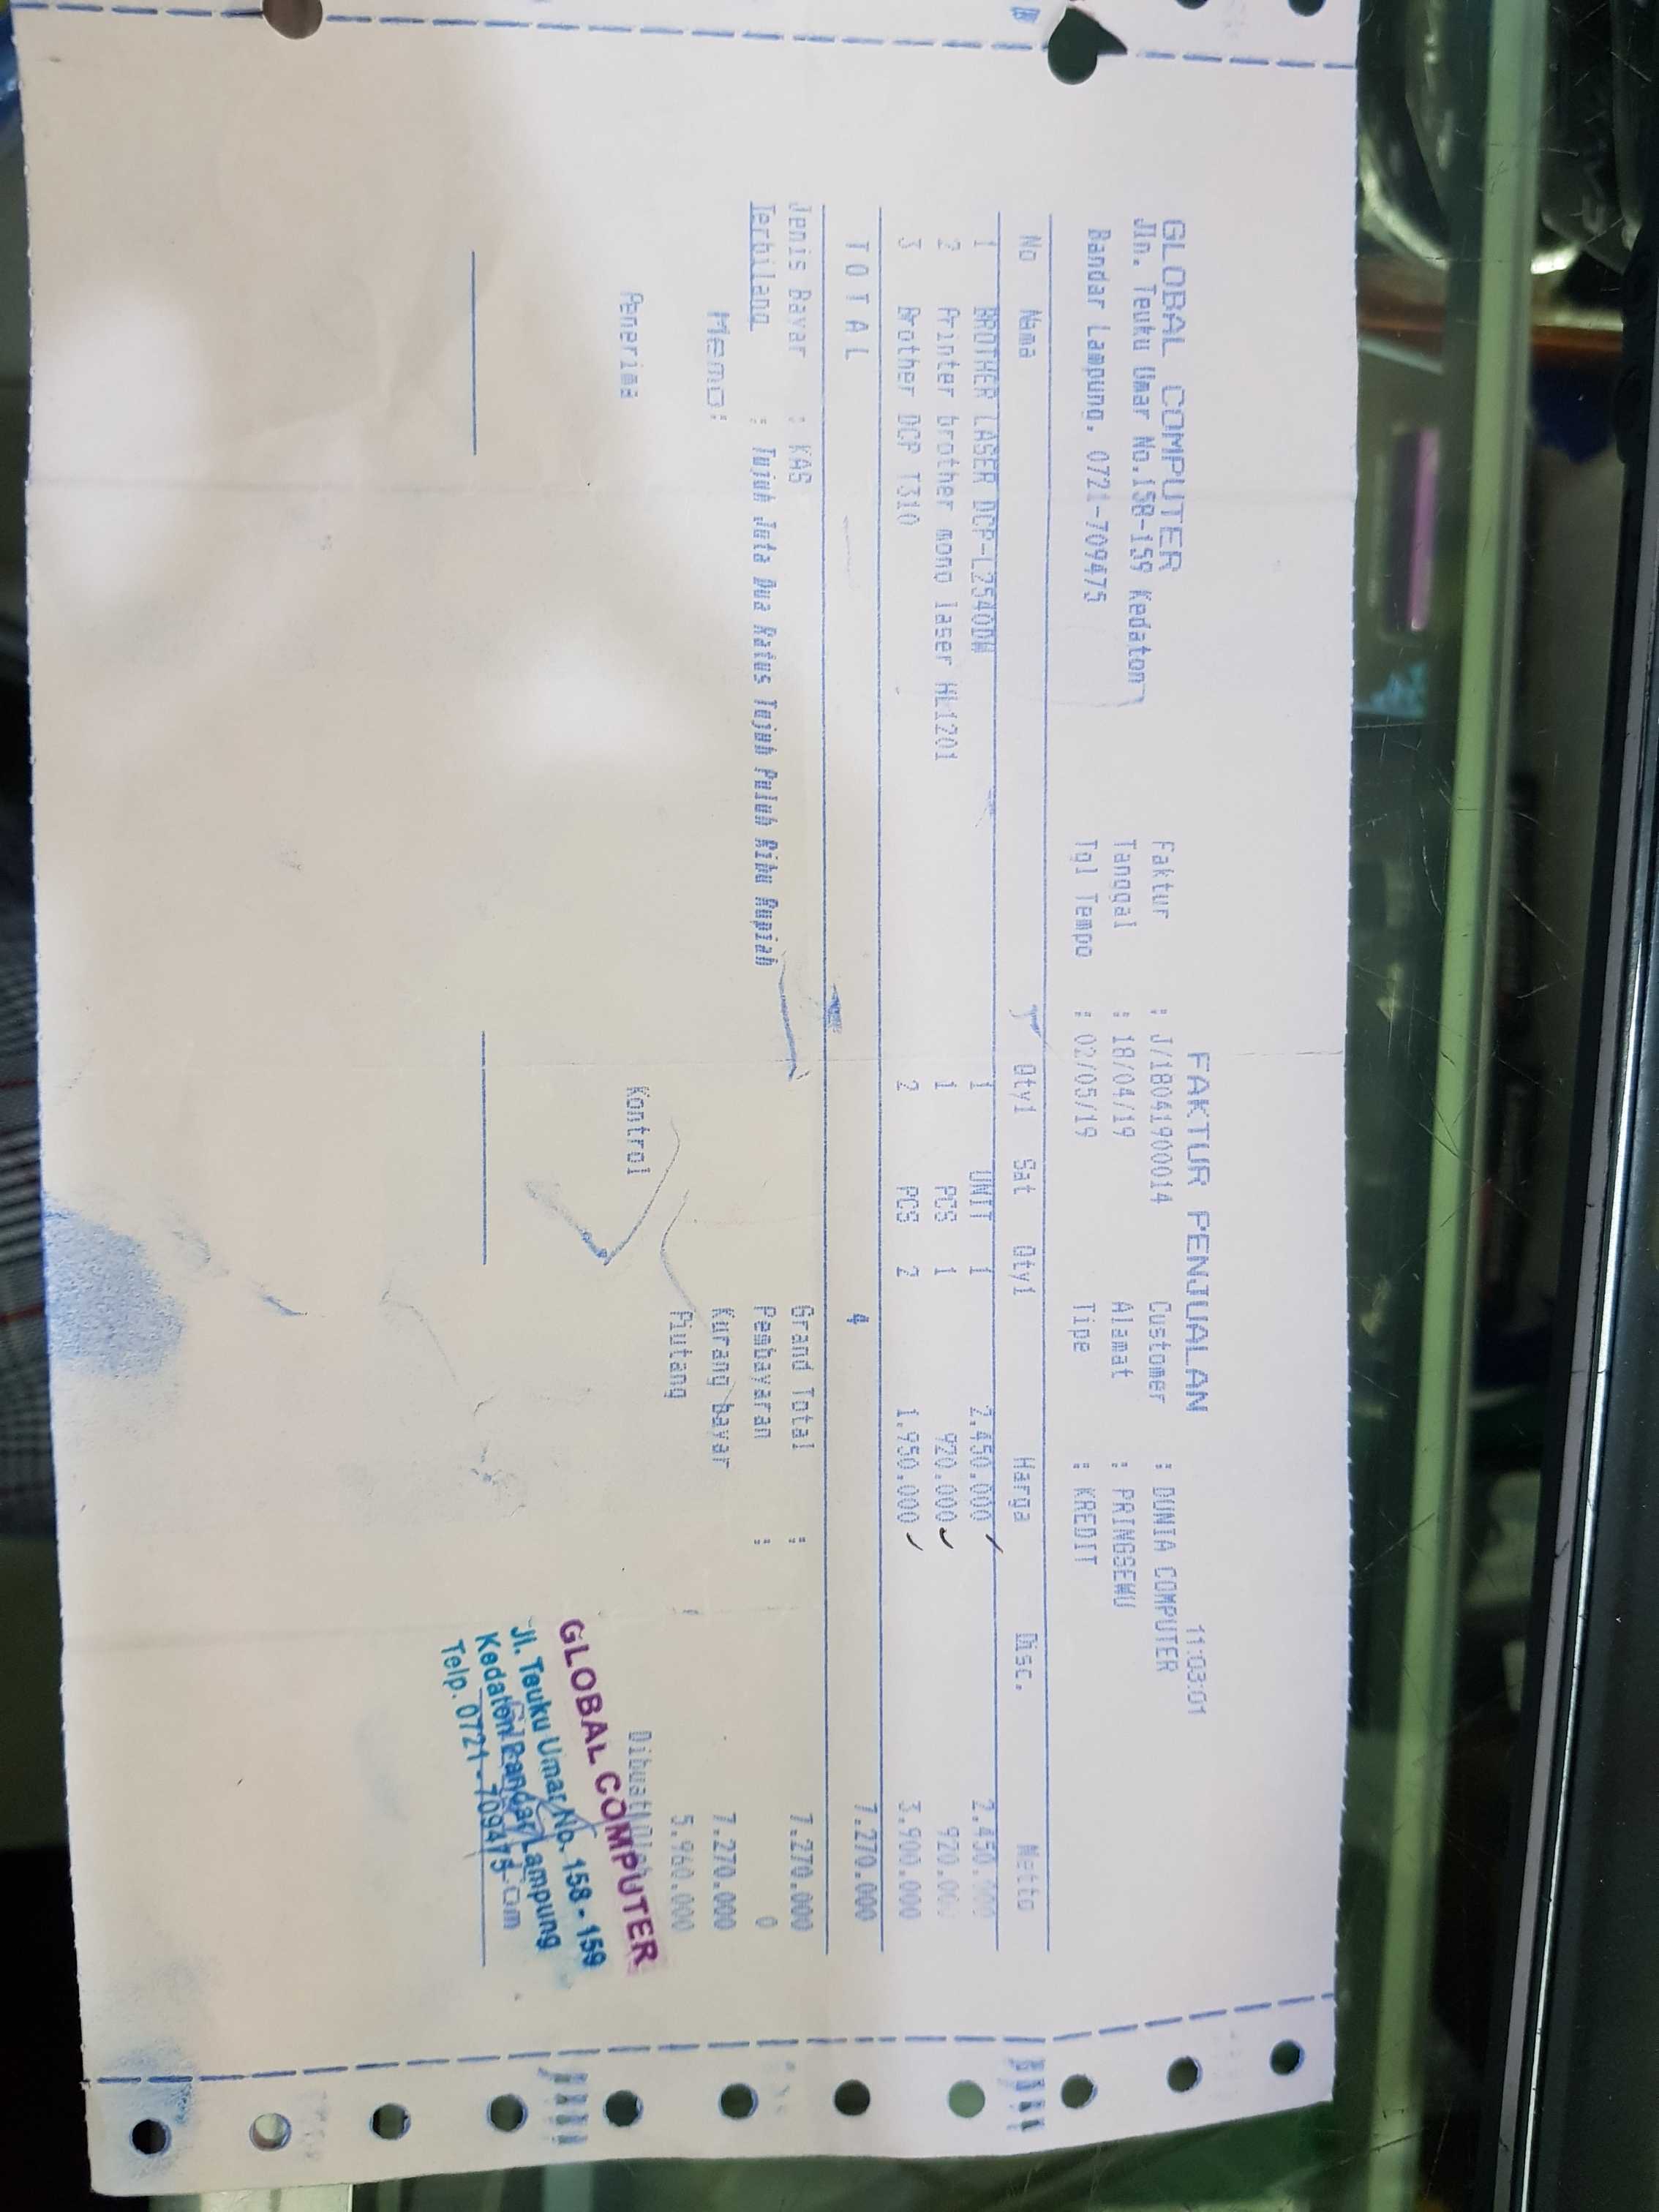 FAKTUR PENJUALAN 11:03:01
GLOBAL COMPUTER
Jln. Teuku Umar No.158-159 Kedaton
Bandar Lampung. 0721-709475
Faktur : J/18041900014
Tanggal : 18/04/19
Tgl Tempo : 02/05/19
Customer : DUNIA COMPUTER
Alamat : PRINGSEWU
Tipe : KREDIT
No Nama Qty1 Sat Qty1 Harga Disc. Netto
1 BROTHER LASER DCP-L2540DW 1 UNIT 1 2.450.000 2.450.000
2 Printer brother mono laser HL1201 1 PCS 1 920.000 920.000
3 Brother DCP T310 2 PCS 2 1.950.000 3.900.000
T O T A L 4 7.270.000
Jenis Bayar : KAS Grand Total : 7.270.000
Terbilang : Tujuh Juta Dua Ratus Tujuh Puluh Ribu Rupiah Pembayaran : 0
Memo: Kurang bayar 7.270.000
Piutang 5.960.000
Penerima Kontrol Dibuat
GLOBAL COMPUTER
Jl. Teuku Umar No. 158 - 159
Kedaton Bandar Lampung
Telp. 0721 - 709475